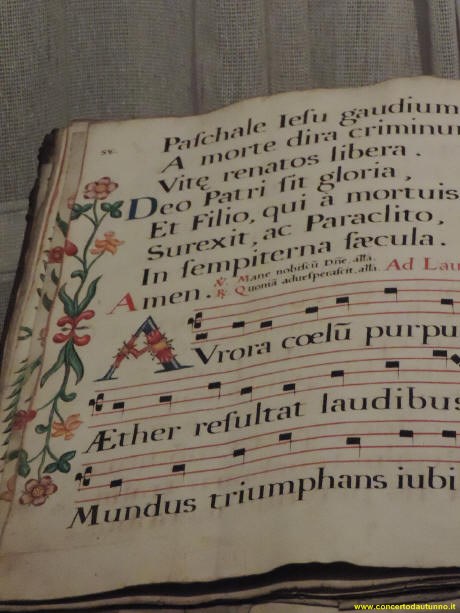 54.
Paſchale Ieſu gaudium
A morte dira criminu
Vitę renatos libera.
Deo Patri ſit gloria,
Et Filio, qui a mortuis
Surexit, ac Paraclito,
In ſempiterna ſæcula.
Amen. ℣. Mane nobiſcũ Dñe. alla. Ad Lau
℟. Quoniã adueſperaſcit. alla.
AVrora cœlũ purpu
Æther reſultat laudibus
Mundus triumphans iubi
www.concertodautunno.it